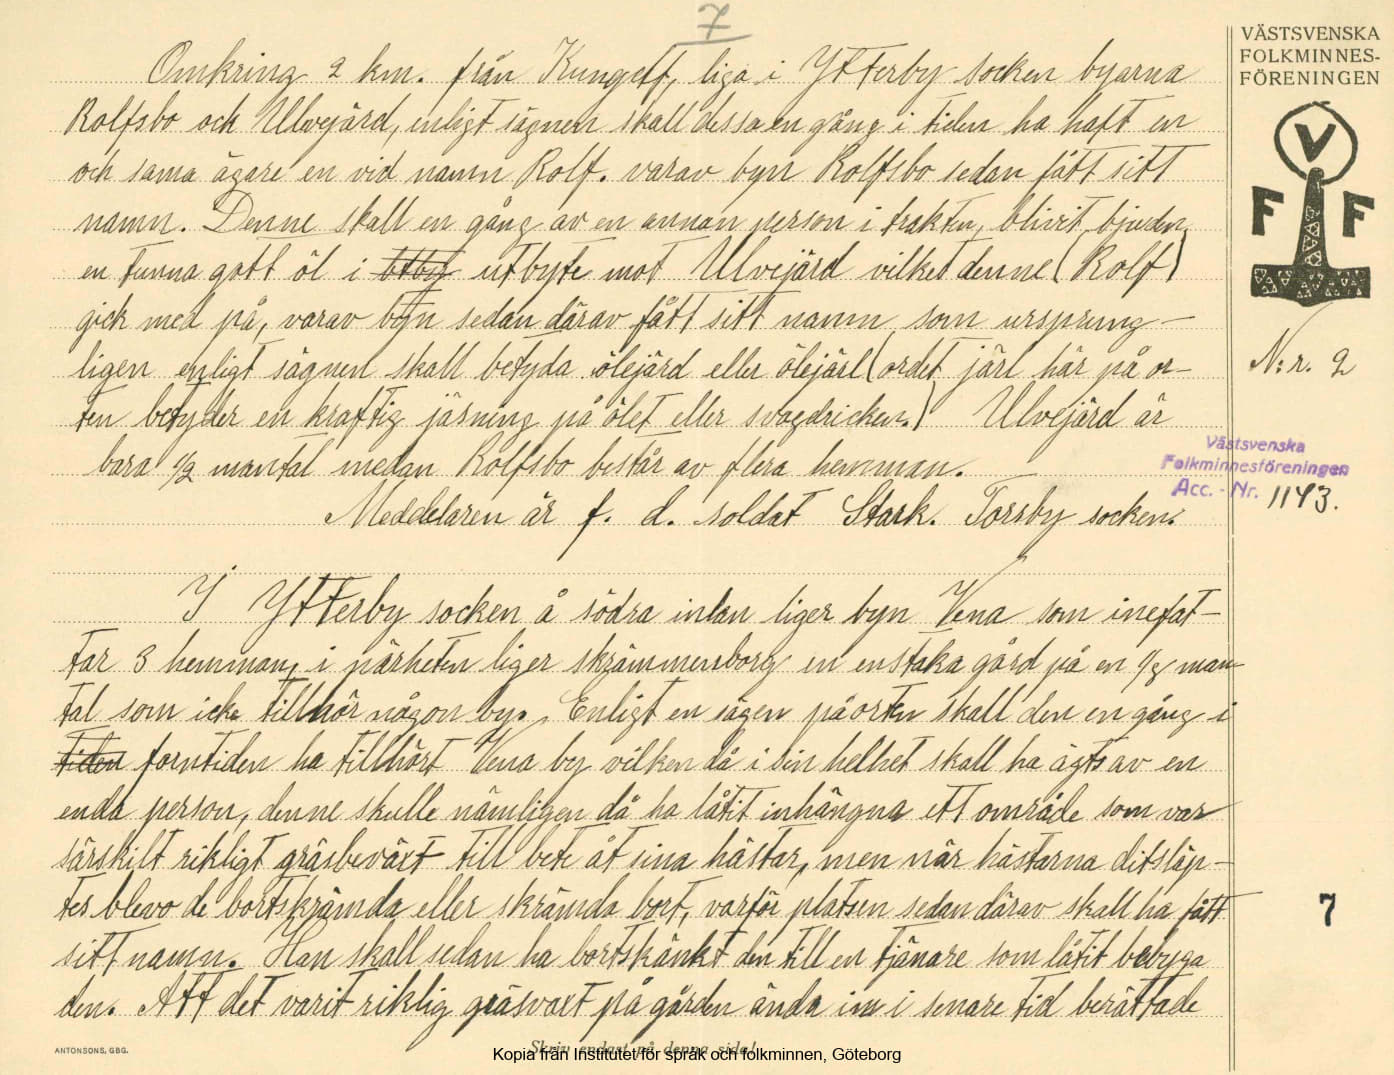 7
VÄSTSVENSKA
FOLKMINNES-
FÖRENINGEN
V
F F
Omkring 2 km. från Kungelf, liga i Ytterby socken byarna
Rolfsbo och Ulvejärd, enligt sägnen skall dessa en gång i tiden ha haft en
och sama ägare en vid namn Rolf. varav byn Rolfsbo sedan fått sitt
namn. Denne skall en gång av en annan person i trakten, blivit bjuden
en tunna gott öl i utbyte mot Ulvejärd vilket denne (Rolf)
gick med på, varav byn sedan därav fått sitt namn som ursprung-
ligen enligt sägnen skall betyda ölejärd eller ölejärl (ordet järl här på or-
ten betyder en kraftig jäsning på ölet eller svagdricken.) Ulvejärd är
bara 1/2 mantal medan Rolfsbo består av flera hemman.
Meddelaren är f. d. soldat Stark. Torsby socken.
N:r. 2
Västsvenska
Folkminnesföreningen
Acc. - Nr. 1143.
I Ytterby socken å södra inlan liger byn Vena som inefat-
tar 3 hemman, i närheten liger skrämmenborg en enstaka gård på en 1/8 man-
tal som icke tillhör någon by. Enligt en sägen på orten skall den en gång i
tiden forntiden ha tillhört Vena by vilken då i sin helhet skall ha ägts av en
enda person, denne skulle nämligen då ha låtit inhängna ett område som var
särskilt rikligt gräsbeväxt till bete åt sina hästar, men när hästarna ditsläp-
tes blevo de bortskrämda eller skrämda bort, varför platsen sedan därav skall ha fått
sitt namn. Han skall sedan ha bortskänkt den till en tjänare som låtit bebyga
den. Att det varit riklig gräsvaxt på gården ända in i senare tid berättade
7
ANTONSONS, GBG.
Skriv endast på denna sida!
Kopia från Institutet för språk och folkminnen, Göteborg